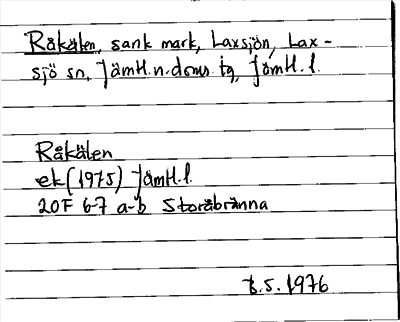 Råkälen, sank mark, Laxsjön, Lax-
sjö sn, Jämtl.n.doms. tg, Jämtl.l.
Råkälen
ek (1975) Jämtl.l.
20F 6-7 a-b Storåbränna
t.s. 1976